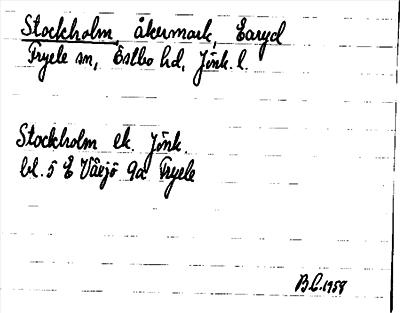 Stockholm, åkermark, Earyd
Fryele sn, Östbo hd, Jönk. l.
Stockholm ek. Jönk.
bl. 5 E Värjö 9a Fryele
B.L. 1958